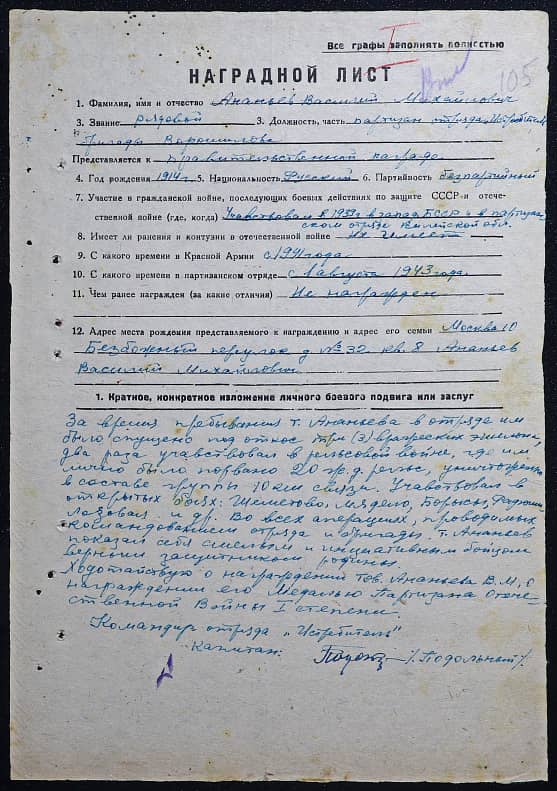 I
Все графы заполнять полностью
105
НАГРАДНОЙ ЛИСТ
1. Фамилия, имя и отчество Ананьев Василий Михайлович
3. Звание рядовой 3. Должность, часть партизан отряда
бригады Ворошилова
Представляется к правительственной награде
4. Год рождения 1914 г. 5. Национальность Русский 6. Партийность безпартийный
7. Участие в гражданской войне, последующих боевых действиях по защите СССР и отече-
ственной войне (где, когда) Учавствовал в запад. БССР и в партизан
ском отряде Вилейской обл.
8. Имеет ли ранения и контузии в отечественной войне Не имеет
9. С какого времени в Красной Армии с 1941 года
10. С какого времени в партизанском отряде с 1 августа 1943 года
11. Чем ранее награжден (за какие отличия) Не награжден
12. Адрес места рождения представляемого к награждению и адрес его семьи Москва 10
Безбожный переулок д № 32 кв. 8 Ананьев
Василий Михайлович
1. Краткое, конкретное изложение личного боевого подвига или заслуг
За время пребывания т. Ананьева в отряде им
было спущено под откос три (3) вражеских эшелона,
два раза учавствовал в рельсовой войне, где им
лично было порвано 20 ж.д. рельс, уничтожено
в составе группы 10 км связи. Учавствовал в
открытых боях: Шеметово, Мядело,
и др. Во всех операциях, проводимых
командованием отряда и бригады, т. Ананьев
показал себя смелым и инициативным бойцом
верным защитником родины.
Ходотайствую о награждении тов. Ананьева В.М, о
награждении его Медалью Партизана Отече-
ственной Войны I степени.
Командир отряда „Истребитель"
Капитан: /Подольный/.